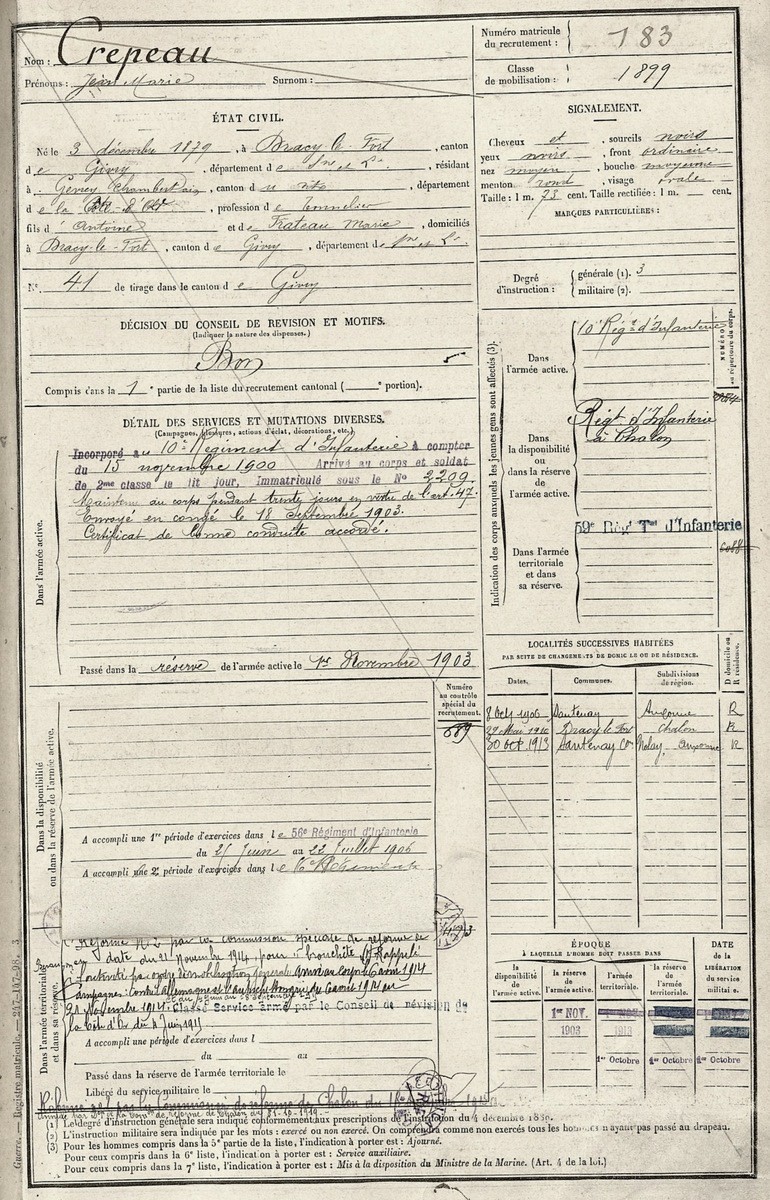 Nom : Crepeau
Prénoms : Jean Marie Surnom :
Numéro matricule du recrutement : 183
Classe de mobilisation : 1899
ÉTAT CIVIL.
Né le 3 décembre 1879, à Dracy-le-Fort, canton
de Givry, département de Sne et Lre, résidant
à Gevrey Chambertain, canton du dit, département
de la Côte-d'Or, profession de Tonnelier
fils d'Antoine et de Frateau Marie, domiciliés
à Dracy-le-Fort, canton de Givry, département de Sne et Lre
N° 41 de tirage dans le canton de Givry
SIGNALEMENT.
Cheveux et, sourcils noirs
yeux noirs, front ordinaire
nez moyen, bouche moyenne
menton rond, visage ovale
Taille : 1 m. 73 cent. Taille rectifiée : 1 m. cent.
MARQUES PARTICULIÈRES :
Degré d'instruction : générale (1). 3
militaire (2).
DÉCISION DU CONSEIL DE REVISION ET MOTIFS.
(Indiquer la nature des dispenses.)
Bon
Compris dans la 1e partie de la liste du recrutement cantonal ( e portion).
DÉTAIL DES SERVICES ET MUTATIONS DIVERSES.
(Campagnes, blessures, actions d'éclat, décorations, etc.)
Dans l'armée active.
Incorporé au 10e Régiment d'Infanterie à compter
du 15 novembre 1900 Arrivé au corps et soldat
de 2me classe le dit jour, Immatriculé sous le No 2209.
Maintenu au corps pendant trente jours en vertu de l'art. 47.
Envoyé en congé le 18 Septembre 1903.
Certificat de bonne conduite accordé.
Passé dans la réserve de l'armée active le 1er Novembre 1903
Numéro au contrôle spécial du recrutement.
689
Dans la disponibilité ou dans la réserve de l'armée active.
A accompli une 1re période d'exercices dans le 56e Régiment d'Infanterie
du 25 Juin au 22 Juillet 1906
A accompli une 2e période d'exercices dans le
Dans l'armée territoriale et dans sa réserve.
Réformé No 2 par la commission spéciale de réforme de
date du 21 Novembre 1914, pour bronchite Rappelé
Campagnes : contre l'allemagne
21 novembre 1914 Classé Service armé par le Conseil de révision de
la Côte d'Or du 1 Juin 1915
A accompli une période d'exercices dans l
du au
Passé dans la réserve de l'armée territoriale le
Libéré du service militaire le
Indication des corps auxquels les jeunes gens sont affectés (3).
NUMÉRO au répertoire du corps.
Dans l'armée active.
10e Régt d'Infanterie
Dans la disponibilité ou dans la réserve de l'armée active.
Régt d'Infanterie
à Chalon
Dans l'armée territoriale et dans sa réserve.
59e Régt Tal d'Infanterie
LOCALITÉS SUCCESSIVES HABITÉES
PAR SUITE DE CHANGEMENTS DE DOMICILE OU DE RÉSIDENCE.
Dates. Communes. Subdivisions de région. D domicile ou R résidence.
8 Oct 1906 Santenay Auxonne R
29 Mai 1910 Dracy le Fort Chalon R
30 Oct 1913 Santenay Con Nolay Auxonne R
ÉPOQUE
À LAQUELLE L'HOMME DOIT PASSER DANS
DATE DE LA LIBÉRATION DU SERVICE MILITAIRE.
la disponibilité de l'armée active. la réserve de l'armée active. l'armée territoriale. la réserve de l'armée territoriale.
1er NOV.
1903 1913
1er Octobre 1er Octobre 1er Octobre
(1) Le degré d'instruction générale sera indiqué conformément aux prescriptions de l'instruction du 4 décembre 1889.
(2) L'instruction militaire sera indiquée par les mots : exercé ou non exercé. On comprendra comme non exercés tous les hommes n'ayant pas passé au drapeau.
(3) Pour les hommes compris dans la 5e partie de la liste, l'indication à porter est : Ajourné.
Pour ceux compris dans la 6e liste, l'indication à porter est : Service auxiliaire.
Pour ceux compris dans la 7e liste, l'indication à porter est : Mis à la disposition du Ministre de la Marine. (Art. 4 de la loi.)
Guerre. — Registre matricule. — 247-107-98. 3